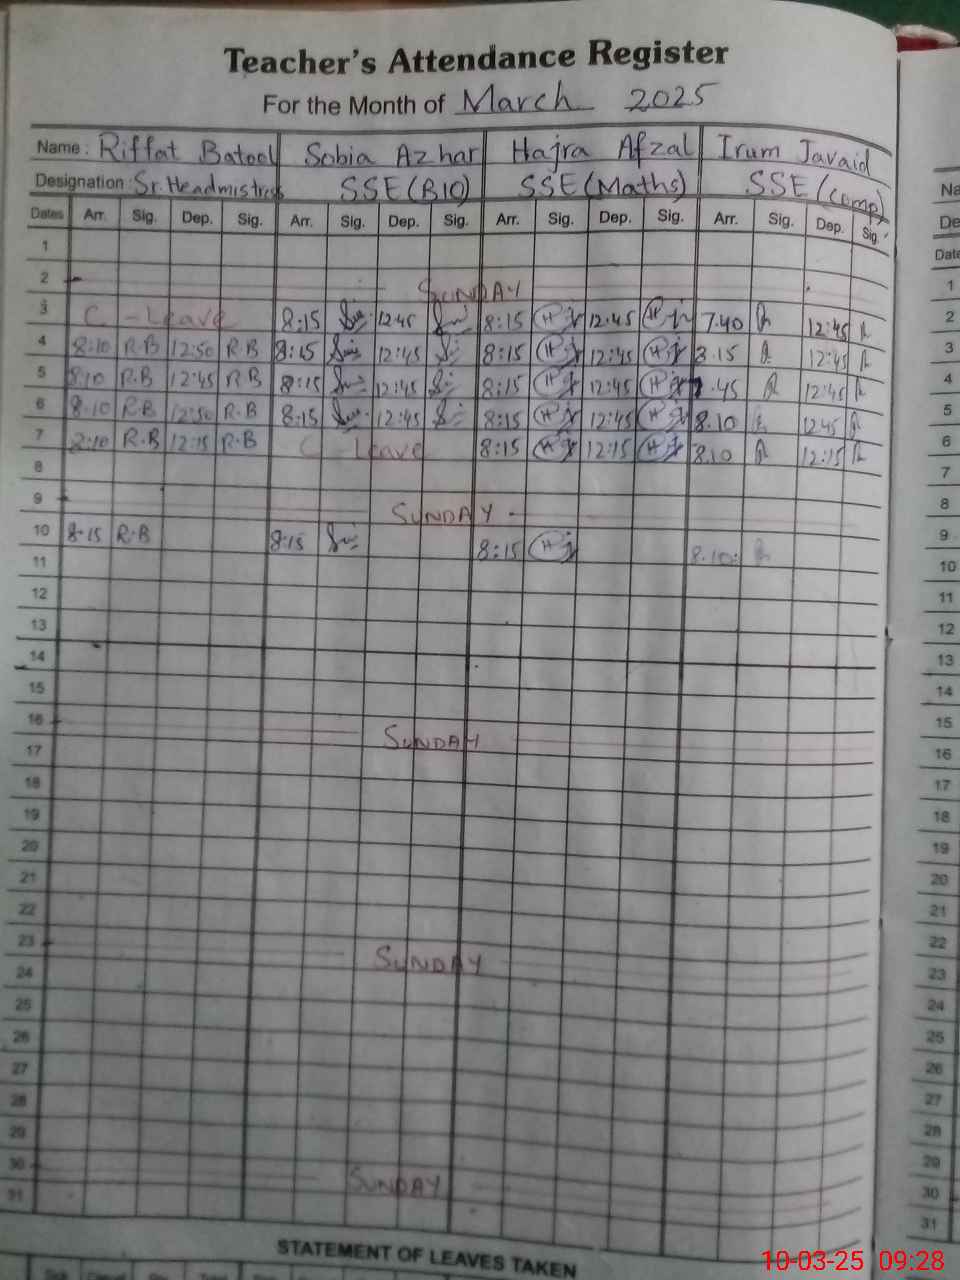 Teacher's Attendance Register
For the Month of March 2025
Name : Riffat Batool Sobia Azhar Hajra Afzal Irum Javaid
Designation : Sr. Headmistress SSE (BIO) SSE (Maths) SSE (Comp)
Dates Arr. Sig. Dep. Sig. Arr. Sig. Dep. Sig. Arr. Sig. Dep. Sig. Arr. Sig. Dep. Sig.
1
2 SUNDAY
3 C - Leave 8:15 12:45 8:15 12:45 7.40 12:45
4 8:10 R.B 12:50 R.B 8:15 12:45 8:15 12:45 12:45
5 8:10 R.B 12:45 R.B 8:15 12:45 8:15 12:45 .45 12:45
6 8.10 R.B 12:50 R.B 8:15 12:45 8:15 12:45 8.10 12:45
7 8:10 R.B 12:15 R.B C - Leave 8:15 12:15 8.10 12:15
8
9 SUNDAY -
10 8:15 R.B 8:15 8:15 8.10
11
12
13
14
15
16 SUNDAY
17
18
19
20
21
22
23 SUNDAY
24
25
26
27
28
29
30 SUNDAY
31
STATEMENT OF LEAVES TAKEN
Na
De
Date
1
2
3
4
5
6
7
8
9
10
11
12
13
14
15
16
17
18
19
20
21
22
23
24
25
26
27
28
29
30
31
10-03-25 09:28